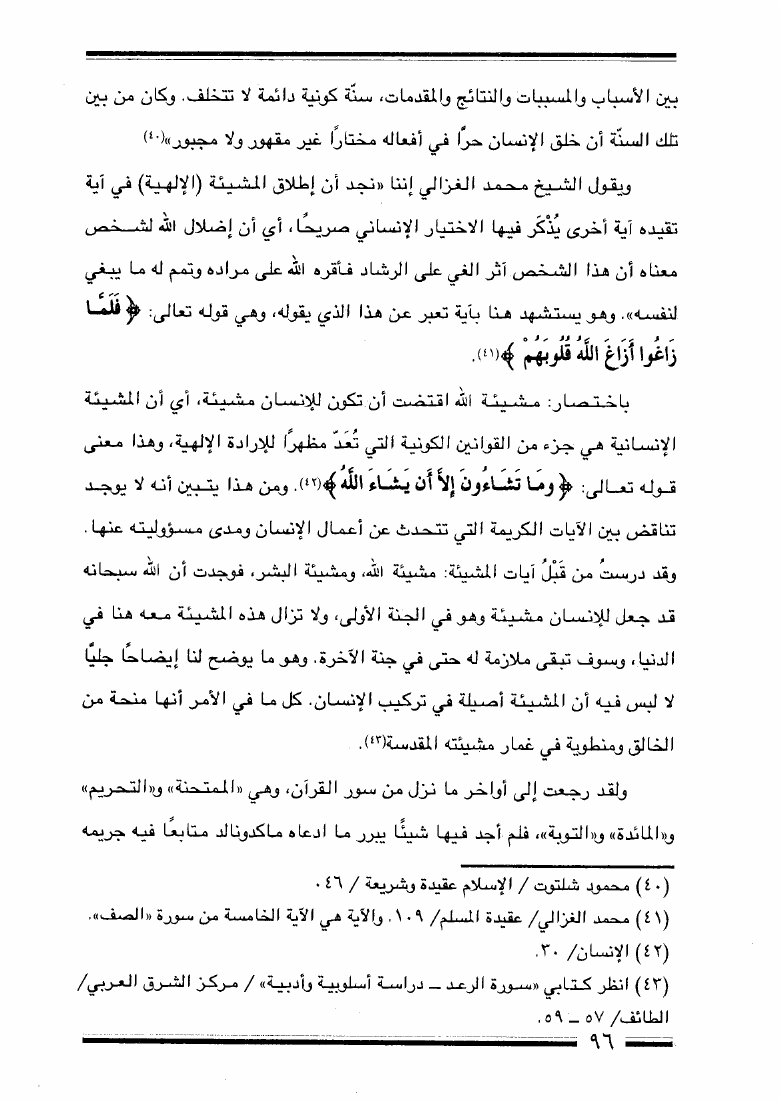 بين الأسباب والمسببات والنتائج والمقدمات، سنّة كونية دائمة لا تتخلف. وكان من بين
تلك السنّة أن خلق الإنسان حرًّا في أفعاله مختارًا غير مقهور ولا مجبور»(٤٠)
ويقول الشيخ محمد الغزالي إننا «نجد أن إطلاق المشيئة (الإلهية) في آية
تقيده آية أخرى يُذْكَر فيها الاختيار الإنساني صريحًا، أي أن إضلال الله لشخص
معناه أن هذا الشخص آثر الغي على الرشاد فأقره الله على مراده وتمم له ما يبغي
لنفسه». وهو يستشهد هنا بآية تعبر عن هذا الذي يقوله، وهي قوله تعالى: ﴿ فَلَمَّا
زَاغُوا أَزَاغَ اللَّهُ قُلُوبَهُمْ ﴾(٤١).
باختصار: مشيئة الله اقتضت أن تكون للإنسان مشيئة، أي أن المشيئة
الإنسانية هي جزء من القوانين الكونية التي تُعَدّ مظهرًا للإرادة الإلهية، وهذا معنى
قوله تعالى: ﴿ وَمَا تَشَاءُونَ إِلاَّ أَن يَشَاءَ اللَّهُ ﴾(٤٢). ومن هذا يتبين أنه لا يوجد
تناقض بين الآيات الكريمة التي تتحدث عن أعمال الإنسان ومدى مسؤوليته عنها.
وقد درستُ من قَبْلُ آيات المشيئة: مشيئة الله، ومشيئة البشر، فوجدت أن الله سبحانه
قد جعل للإنسان مشيئة وهو في الجنة الأولى، ولا تزال هذه المشيئة معه هنا في
الدنيا، وسوف تبقى ملازمة له حتى في جنة الآخرة. وهو ما يوضح لنا إيضاحًا جليًّا
لا لبس فيه أن المشيئة أصيلة في تركيب الإنسان. كل ما في الأمر أنها منحة من
الخالق ومنطوية في غمار مشيئته المقدسة(٤٣).
ولقد رجعت إلى أواخر ما نزل من سور القرآن، وهي «الممتحنة» و«التحريم»
و«المائدة» و«التوبة»، فلم أجد فيها شيئًا يبرر ما ادعاه ماكدونالد متابعًا فيه جريمه
(٤٠) محمود شلتوت / الإسلام عقيدة وشريعة / ٤٦.
(٤١) محمد الغزالي/ عقيدة المسلم/ ١٠٩. والآية هي الآية الخامسة من سورة «الصف».
(٤٢) الإنسان/ ٣٠.
(٤٣) انظر كتابي «سورة الرعد ــ دراسة أسلوبية وأدبية» / مركز الشرق العربي/
الطائف/ ٥٧ ــ ٥٩.
٩٦